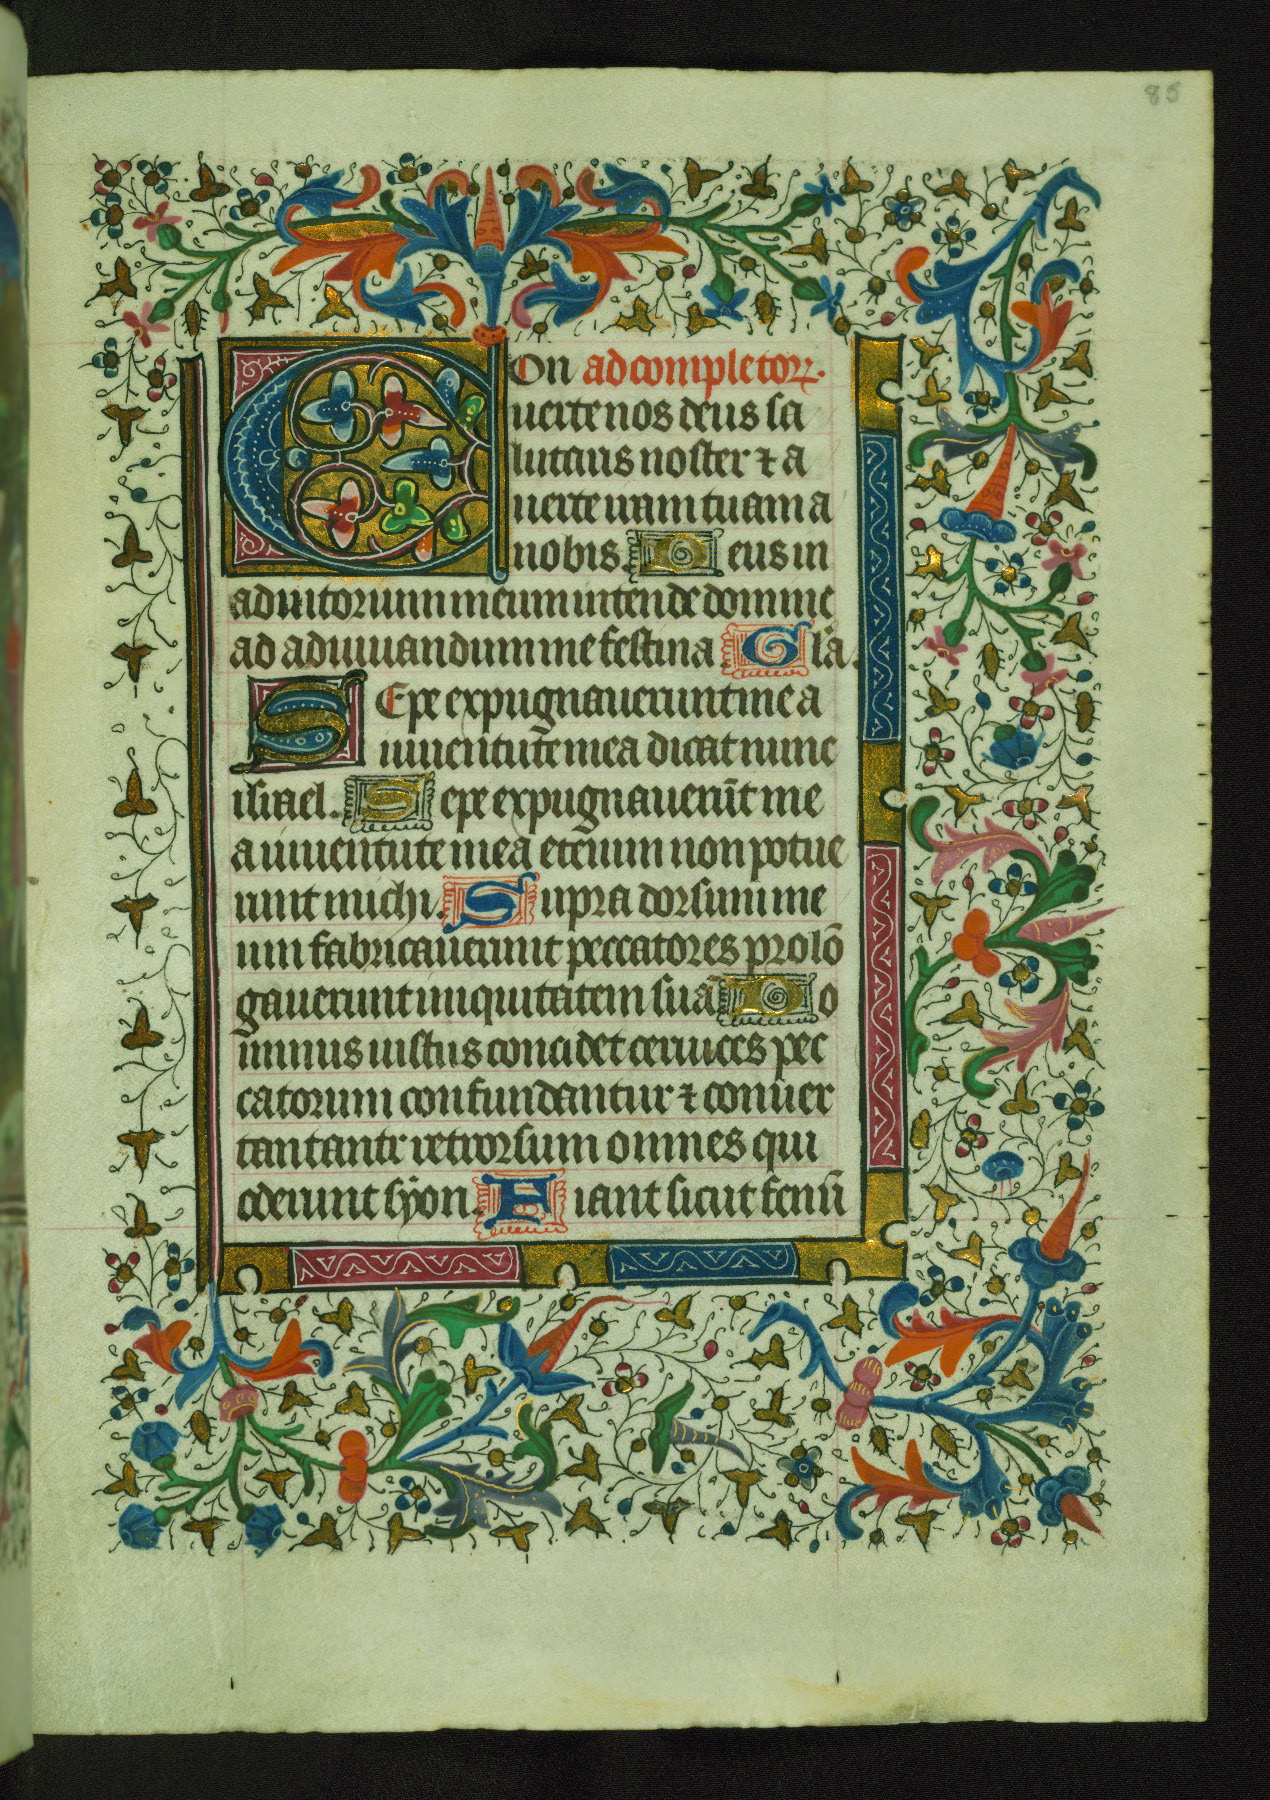 85
COn ad completor̄.
uerte nos deus sa
lutaris noster ⁊ a
uerte iram tuam a
nobis. Deus in
adiutorium meum intende domine
ad adiuuandum me festina. Gl̄a.
SEpe expugnauerunt me a
iuuentute mea dicat nunc
israel. Sepe expugnauerūt me
a iuuentute mea etenim non potue
runt michi. Supra dorsum me
um fabricauerunt peccatores prolō
gauerunt iniquitatem suā. Do
minus iustus concidet ceruices pec
catorum confundantur ⁊ conuer
tantantr retrorsum omnes qui
oderunt syon. Fiant sicut fenū